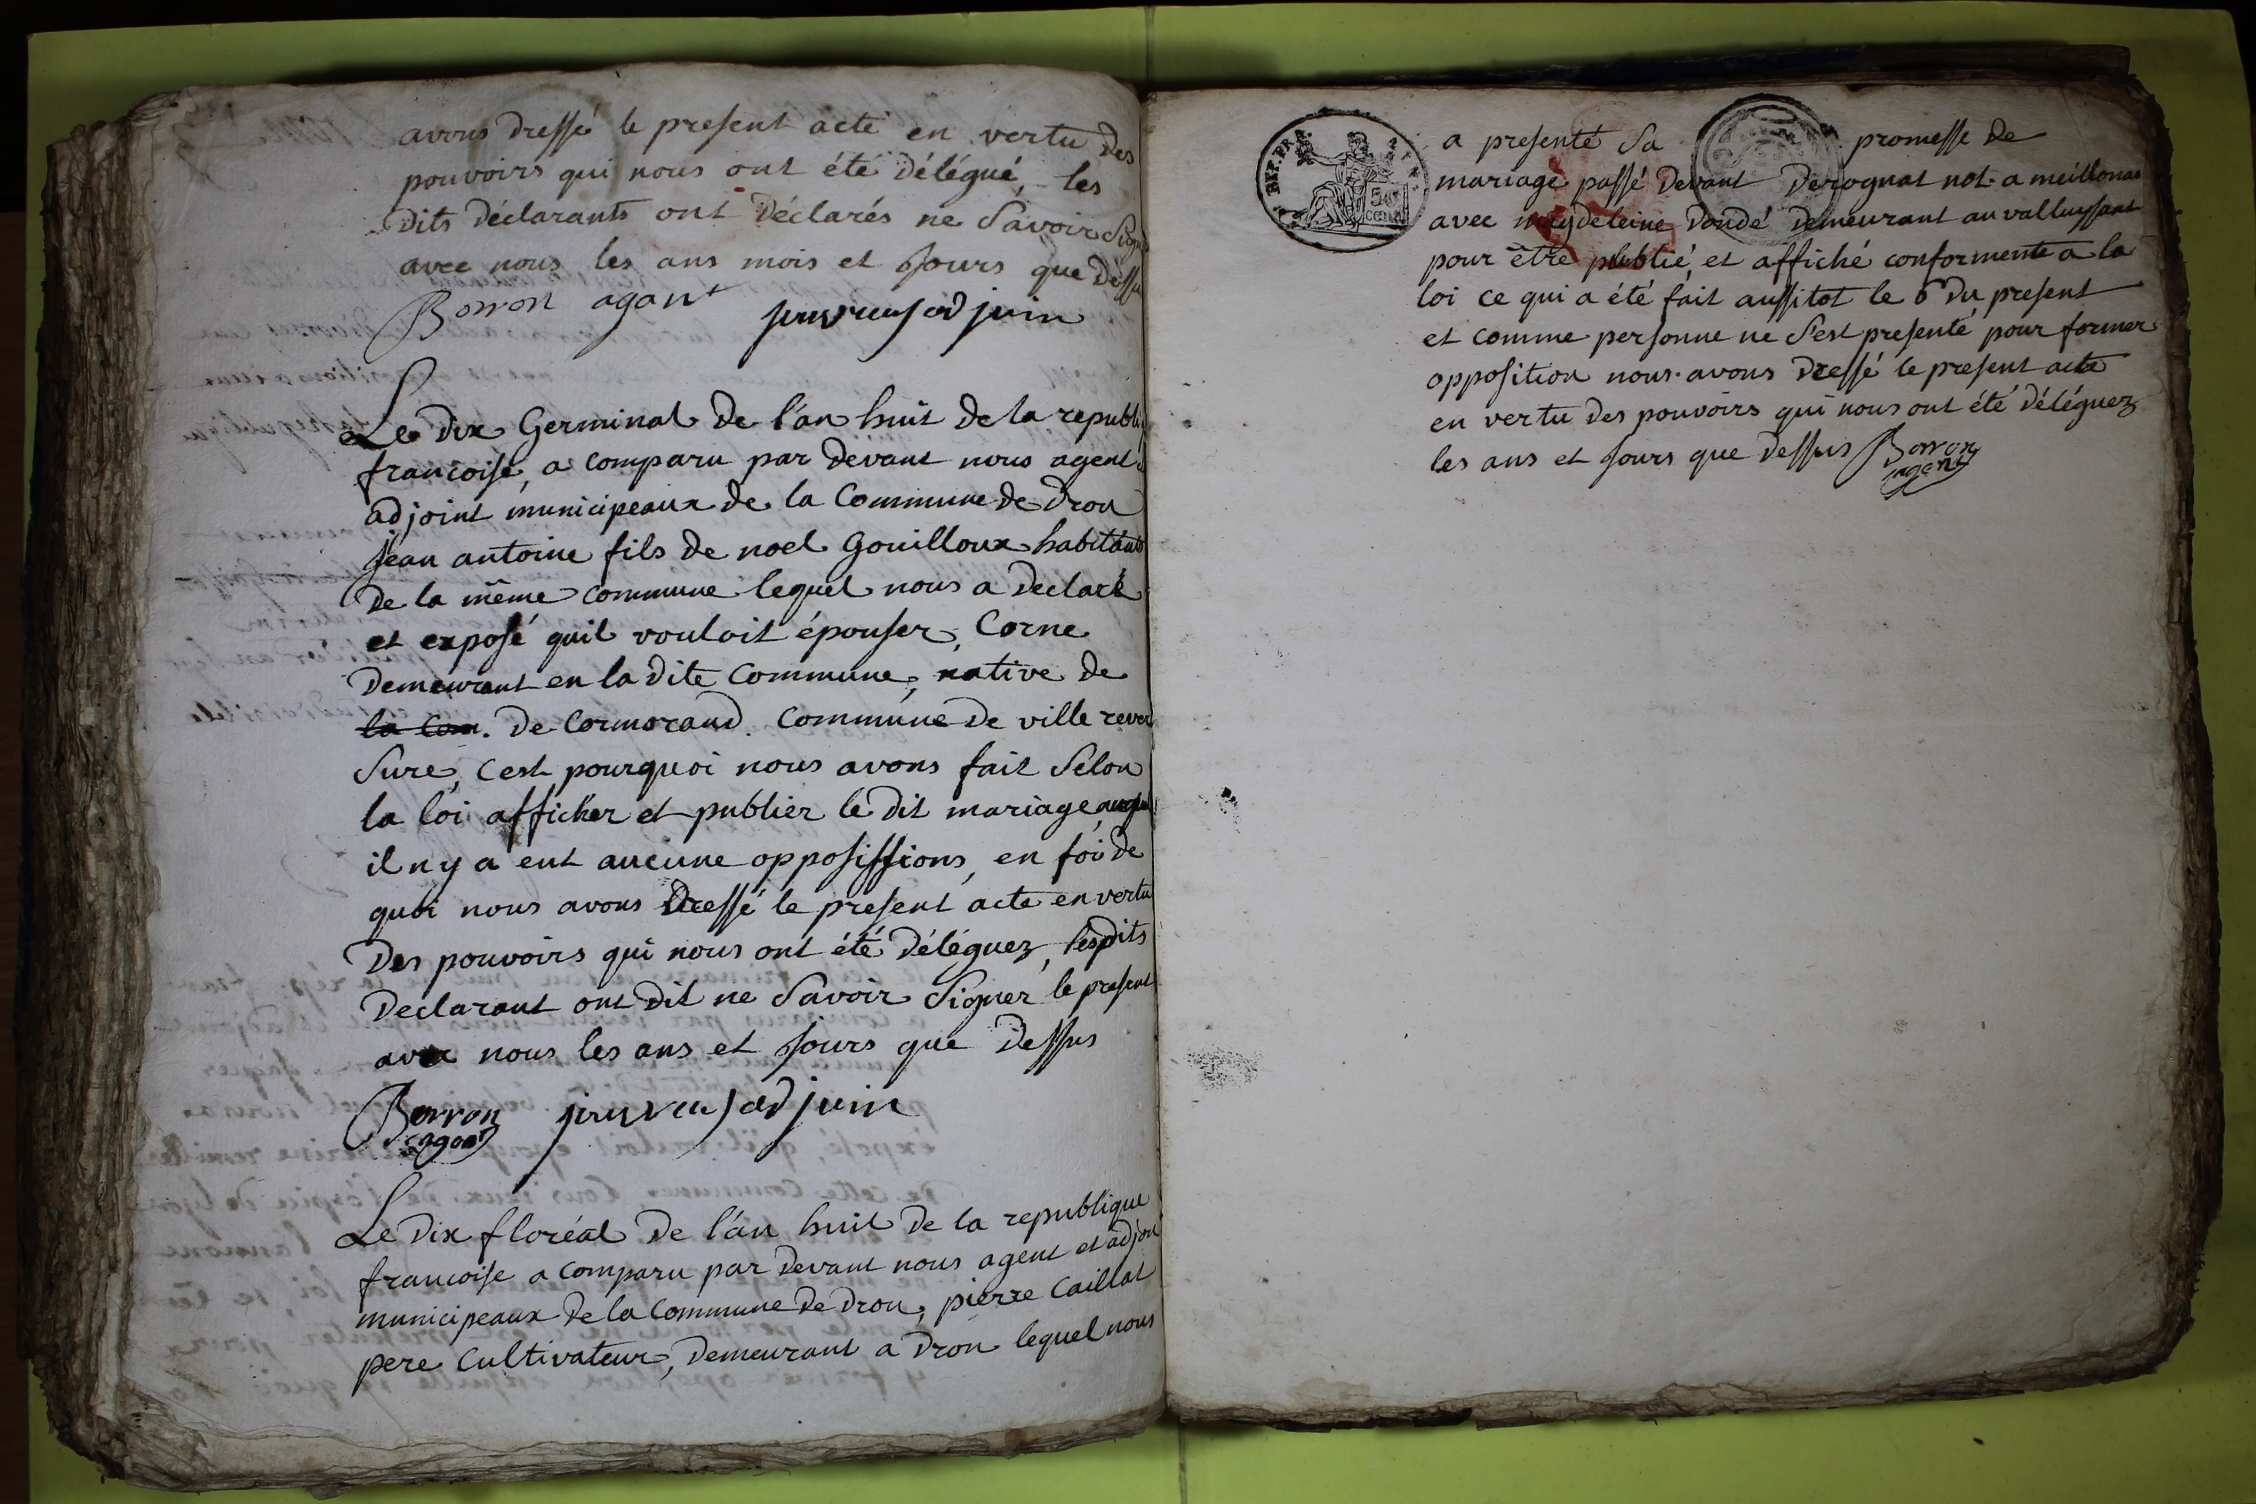 avons dressé le present acte en vertu des
pouvoirs qui nous ont été délégué, les
dits déclarants ont déclarés ne savoir signé
avec nous les ans mois et jours que dessu
Borron agant adjuin
Le dix Germinal de l'an huit de la republi
francoise, a comparu par devant nous agent
adjoint municipeaux de la Commune de Drou
jean antoine fils de noel Gouilloux habitant
de la même commune lequel nous a declaré
et exposé quil vouloit épouser, Corne
demeurant en la dite Commune, native de
la Com. de Cormoraud Commune de ville rever
sure, cest pourquoi nous avons fait selon
la loi afficher et publier le dit mariage, auquel
il n y a eut aucune oppositions, en foi de
quoi nous avons dressé le present acte en vertu
des pouvoirs qui nous ont été déléguez, lesdits
declarant ont dit ne savoir signer le present
avec nous les ans et jours que dessus
Borron adjuin
agant
Le dix floréal de l'an huit de la republique
francoise a comparu par devant nous agent et adjoi
municipeaux de la Commune de Drou, pierre Caillat
pere Cultivateur, demeurant a Drou lequel nous
REP. FRA.
50
CENT.
a presenté sa promesse de
mariage passé devant derognat not. a meillonas
avec magdeleine dondé demeurant au valluissant
pour être publié, et affiché conformente a la
loi ce qui a été fait aussitot le 6 du present
et comme personne ne s'est presenté pour former
opposition nous avons dressé le present acte
en vertu des pouvoirs qui nous ont été déléguez
les ans et jours que dessus Borron
agent